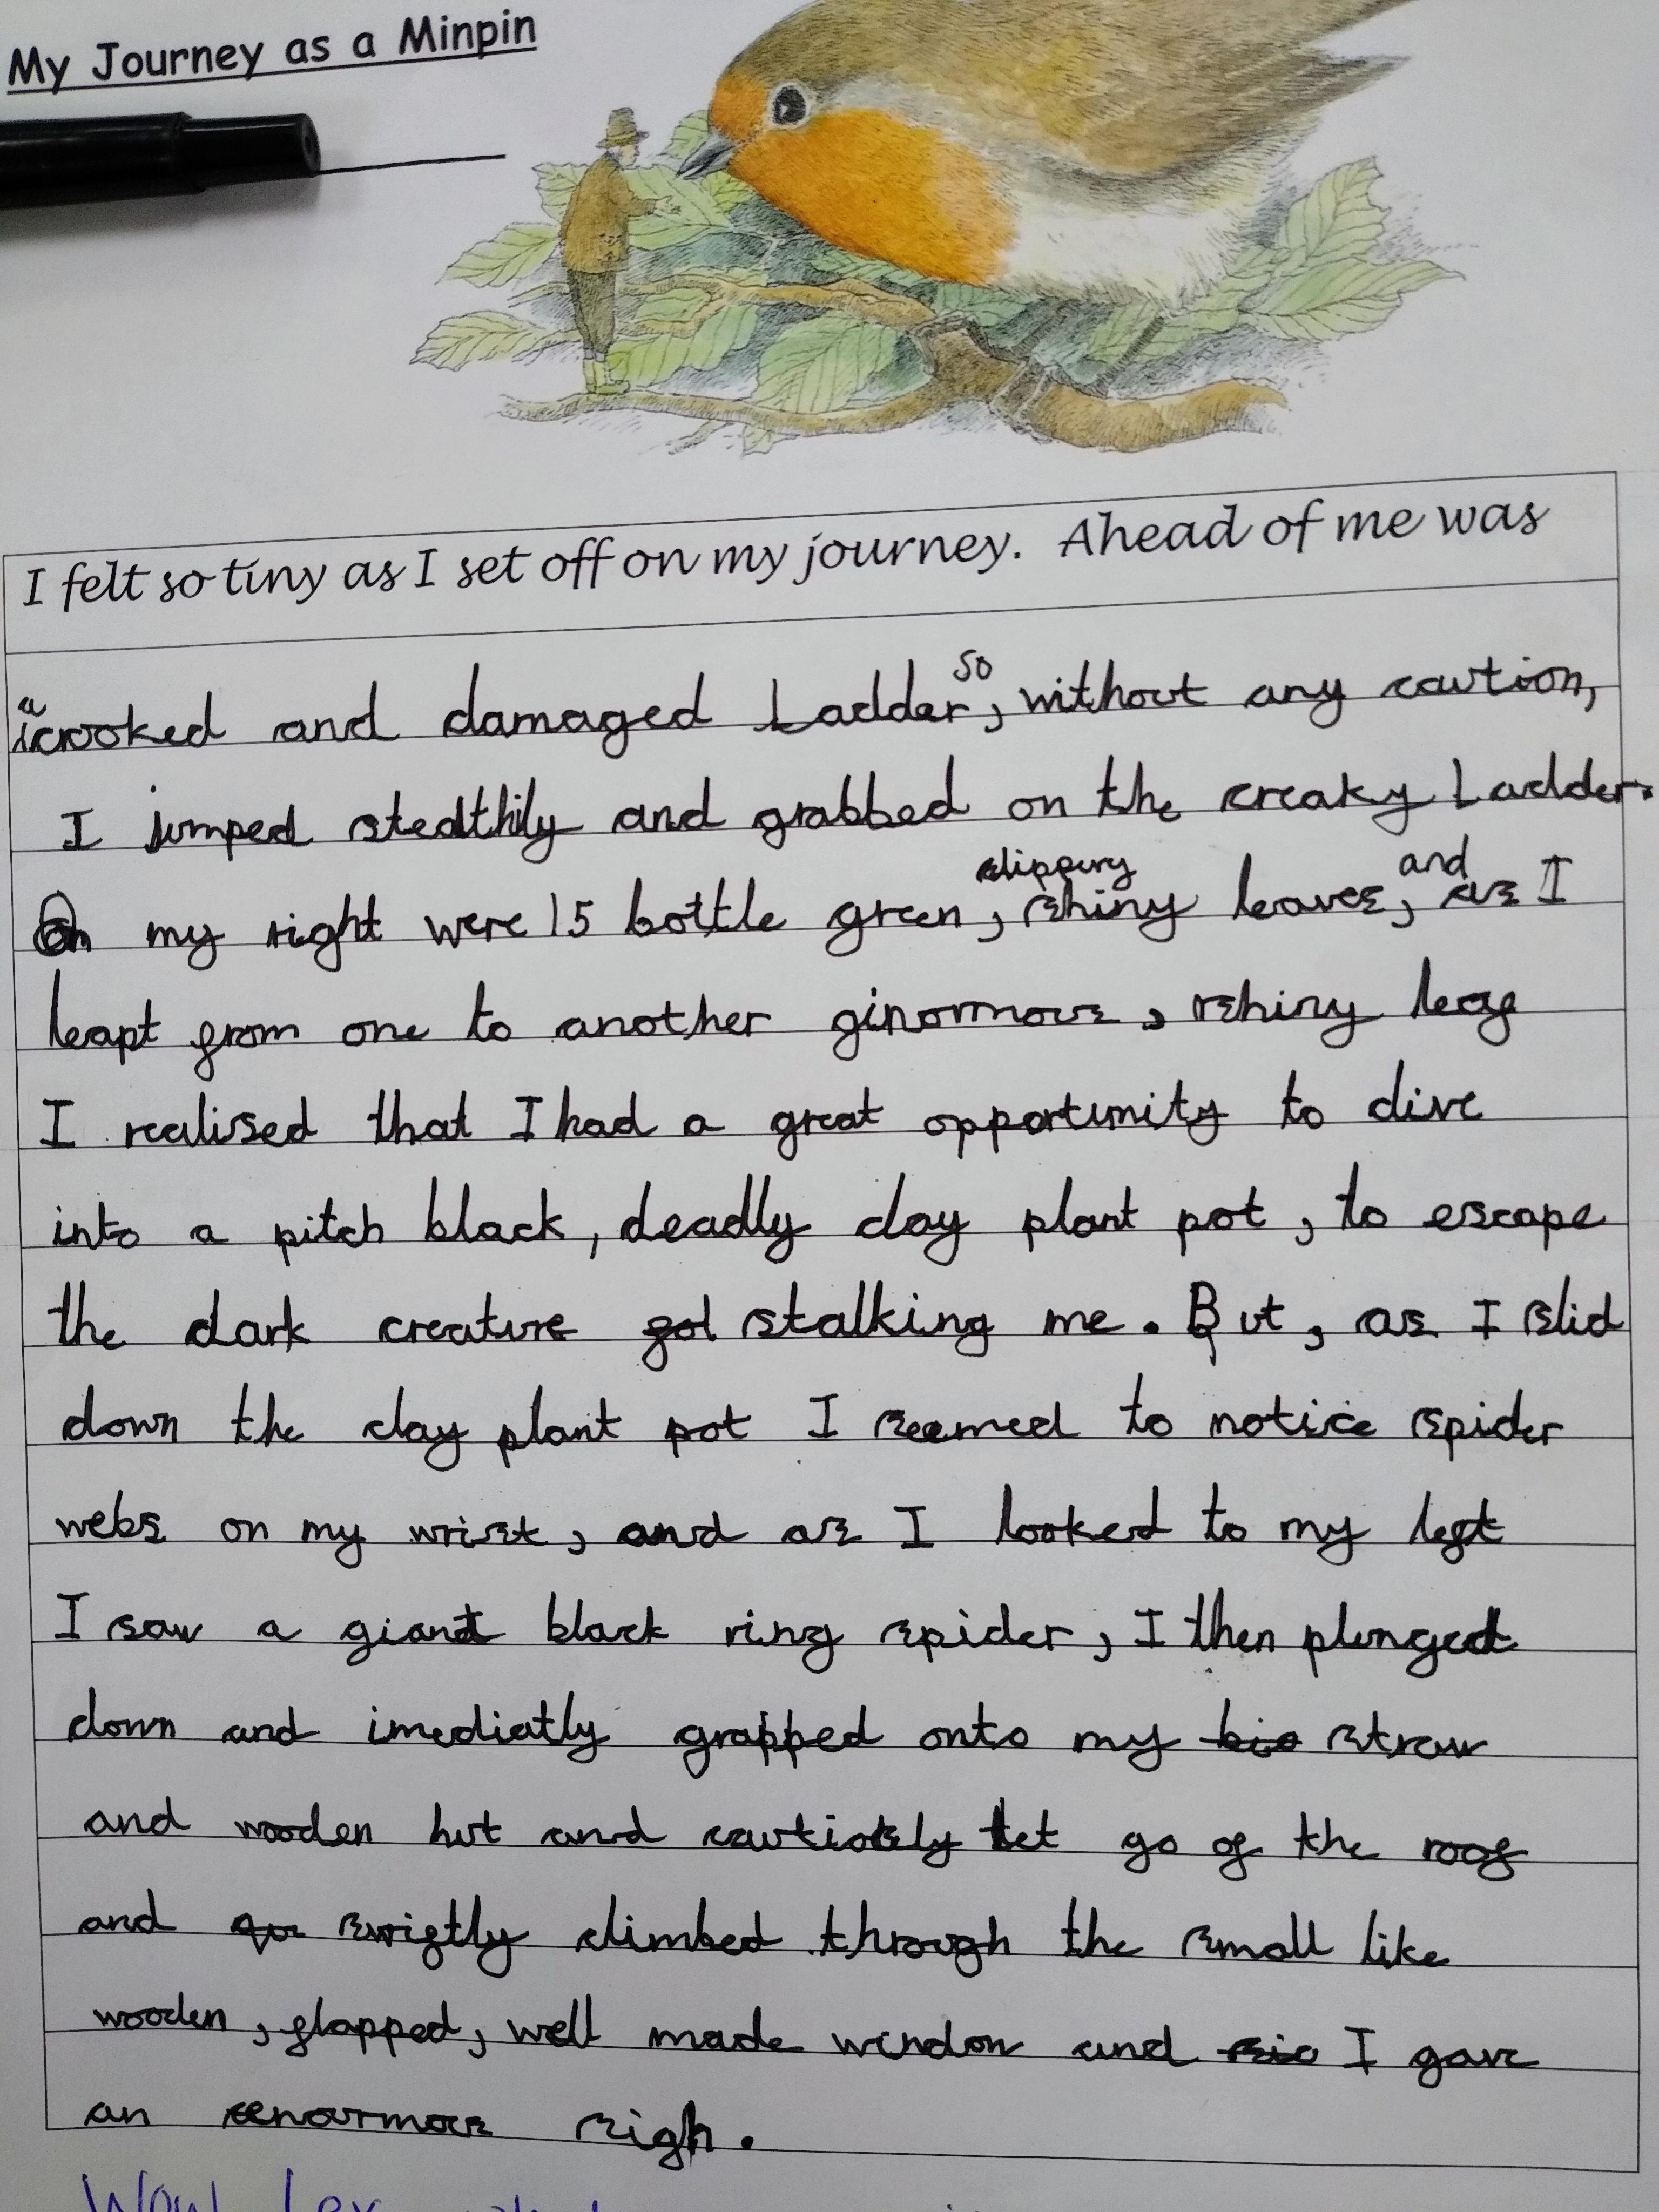 My Journey as a Minpin
I felt so tiny as I set off on my journey. Ahead of me was
a crooked and damaged Ladder, so without any caution,
I jumped stealthily and grabbed on the creaky Ladder.
On my right were 15 bottle green, slippery shiny leaves, and as I
leapt from one to another ginormous, shiny leaf
I realised that I had a great opportunity to dive
into a pitch black, deadly clay plant pot, to escape
the dark creature got stalking me. But, as I slid
down the clay plant pot I seemed to notice spider
webs on my wrist, and as I looked to my left
I saw a giant black ring spider, I then plunged
down and imediatly grapped onto my straw
and wooden hut and cautiously let go of the roof
and swiftly climbed through the small like
wooden, flapped, well made window and I gave
an enourmous sigh.
Wow! Lex